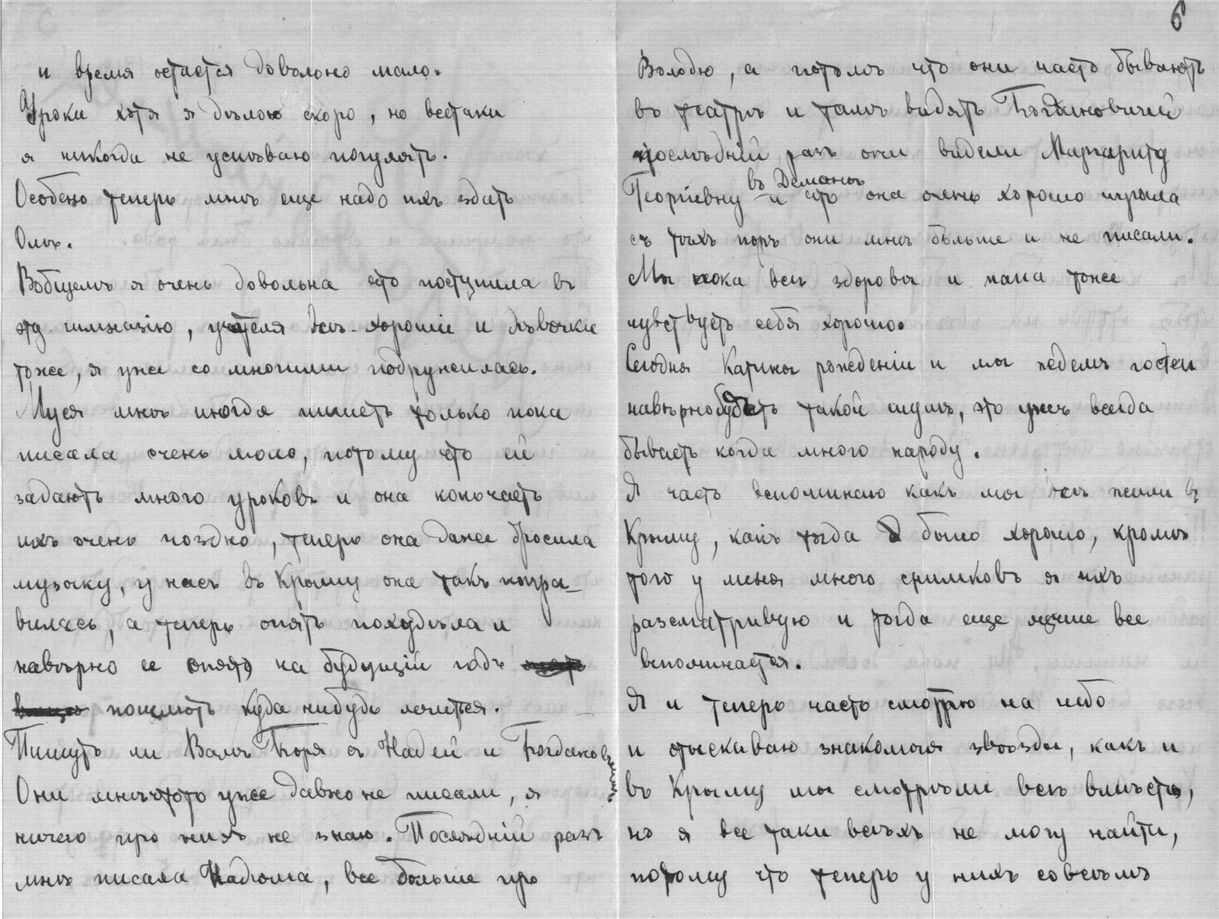 и время остается довольно мало.
Уроки хотя я дѣлаю скоро, но всетаки
я никогда не успѣваю погулять.
Особено теперь мнѣ еще надо ихъ здать
Олѣ.
Вобщемъ я очень довольна что поступила въ
эту гимназію, учителя всѣ хорошіе и дѣвочки
тоже, я уже со многими подружилась.
Муся мнѣ иногда пишетъ только пока
писала очень мало, потому что ей
задають много уроковъ и она кончаетъ
ихъ очень поздно, теперь она даже бросила
музыку, у насъ въ Крыму она такъ попра-
вилась, а теперь опять похудѣла и
навѣрно ее опять на будущій годъ
пошлютъ куда нибудь лечится.
Пишутъ ли Вамъ Боря съ Надей и Богдановичи
Они мнѣ что то уже давно не писали, я
ничего про нихъ не знаю. Послѣдній разъ
мнѣ писала Надюша, все больше про
6
Володю, а потомъ что они часто бываютъ
въ театрѣ и тамъ видятъ Богдановичей
послѣдній разъ они видели Маргариту
Георгіевну въ Демонѣ и что она очень хорошо играла
съ тѣхъ поръ они мнѣ больше и не писали.
Мы пока всѣ здоровы и папа тоже
чувствуетъ себя хорошо.
Сегодня Катины рожденіи и мы ждемъ гостей
навѣрно будетъ такой шумъ, это ужъ всегда
бываетъ когда много народу.
Я часть вспоминаю какъ мы всѣ жили въ
Крыму, какъ тогда было хорошо, кромѣ
того у меня много снимковъ я ихъ
разсматривую и тогда еще лучше все
вспоминается.
Я и теперь часть смотрю на небо
и отыскиваю знакомыя звѣзды, какъ и
въ Крыму мы смотрѣли всѣ вмѣстѣ,
но я все таки всѣхъ не могу найти,
потому что теперь у нихъ совсѣмъ